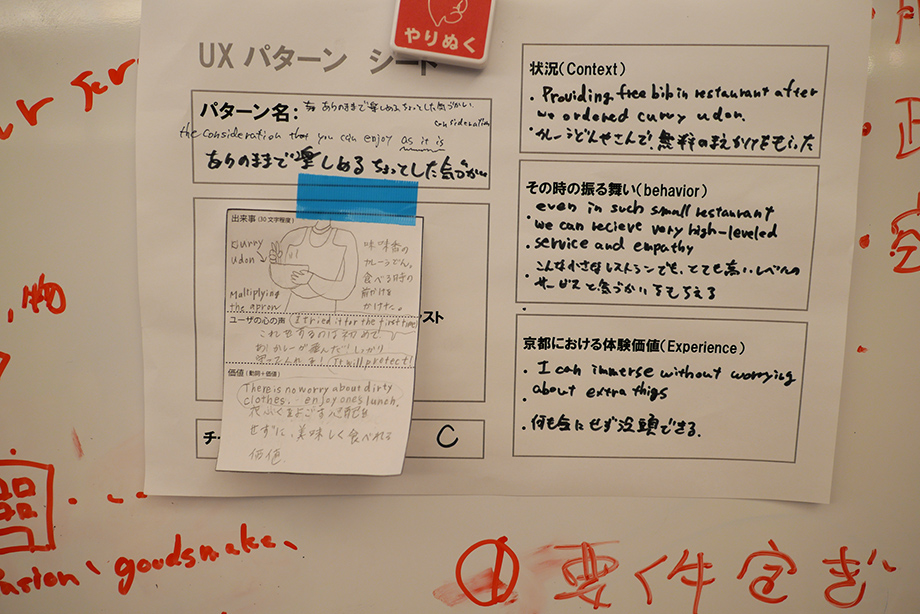 やりぬく
UX パターン シート
パターン名:
ありのままで楽しめるちょっとした気づかい
consideration
the consideration that you can enjoy as it is
ありのままで楽しめるちょっとした気づかい
出来事(30文字程度)
Kurry
udon
味味香の
カレーうどん。
食べる時の
前かけを
かけた。
Maltiplying
the apron
ユーザの心の声
I tried it for the first time
これをするのは初めて
It will protect!
価値(動詞+価値)
There is no worry about dirty
clothes. enjoy one's lunch.
せずに、美味しく食べれる
価値.
スト
チ
C
状況(Context)
・Providing free bib in restaurant after
we ordored curry udon.
・カレーうどんやさんで、無料のまえかけをもらった
その時の振る舞い(behavior)
・even in such small restaurant
we can recieve very high-leveled
service and empathy
・こんな小さなレストランでも、とても高いレベルの
サービスと気づかいをもらえる
京都における体験価値(Experience)
・I can immerse without worrying
about extra thigs
・何も気にせず没頭できる.
物
goodsmake、
① 要件定ぎ